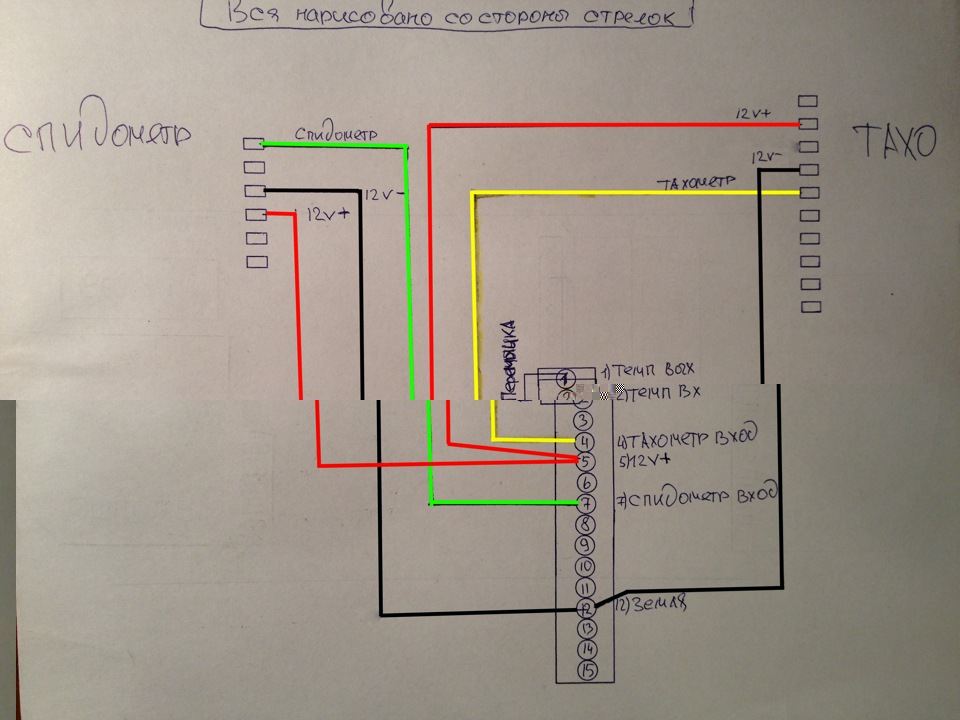 Вся нарисовано со стороны стрелок
СПИДОМЕТР
СПИДОМЕТР
12V-
12V+
12V+
12V-
ТАХОМЕТР
ТАХО
Перемычка
1
1) ТЕМП ВЫХ
2) ТЕМП ВХ
3
4
4) ТАХОМЕТР ВХОД
5
5) 12V+
6
7
7) СПИДОМЕТР ВХОД
8
9
10
11
12
12) ЗЕМЛЯ
13
14
15